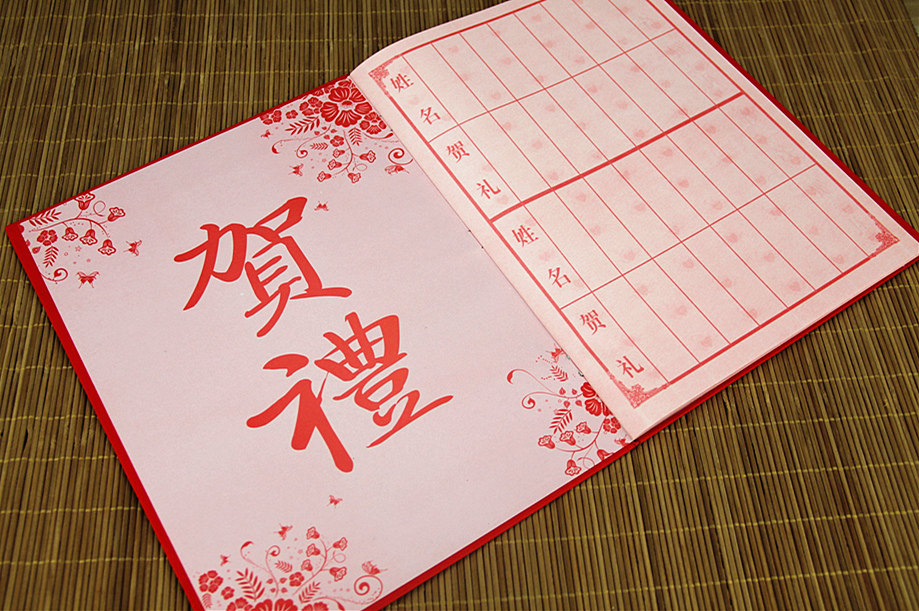 賀
禮
姓名
贺礼
姓名
贺礼